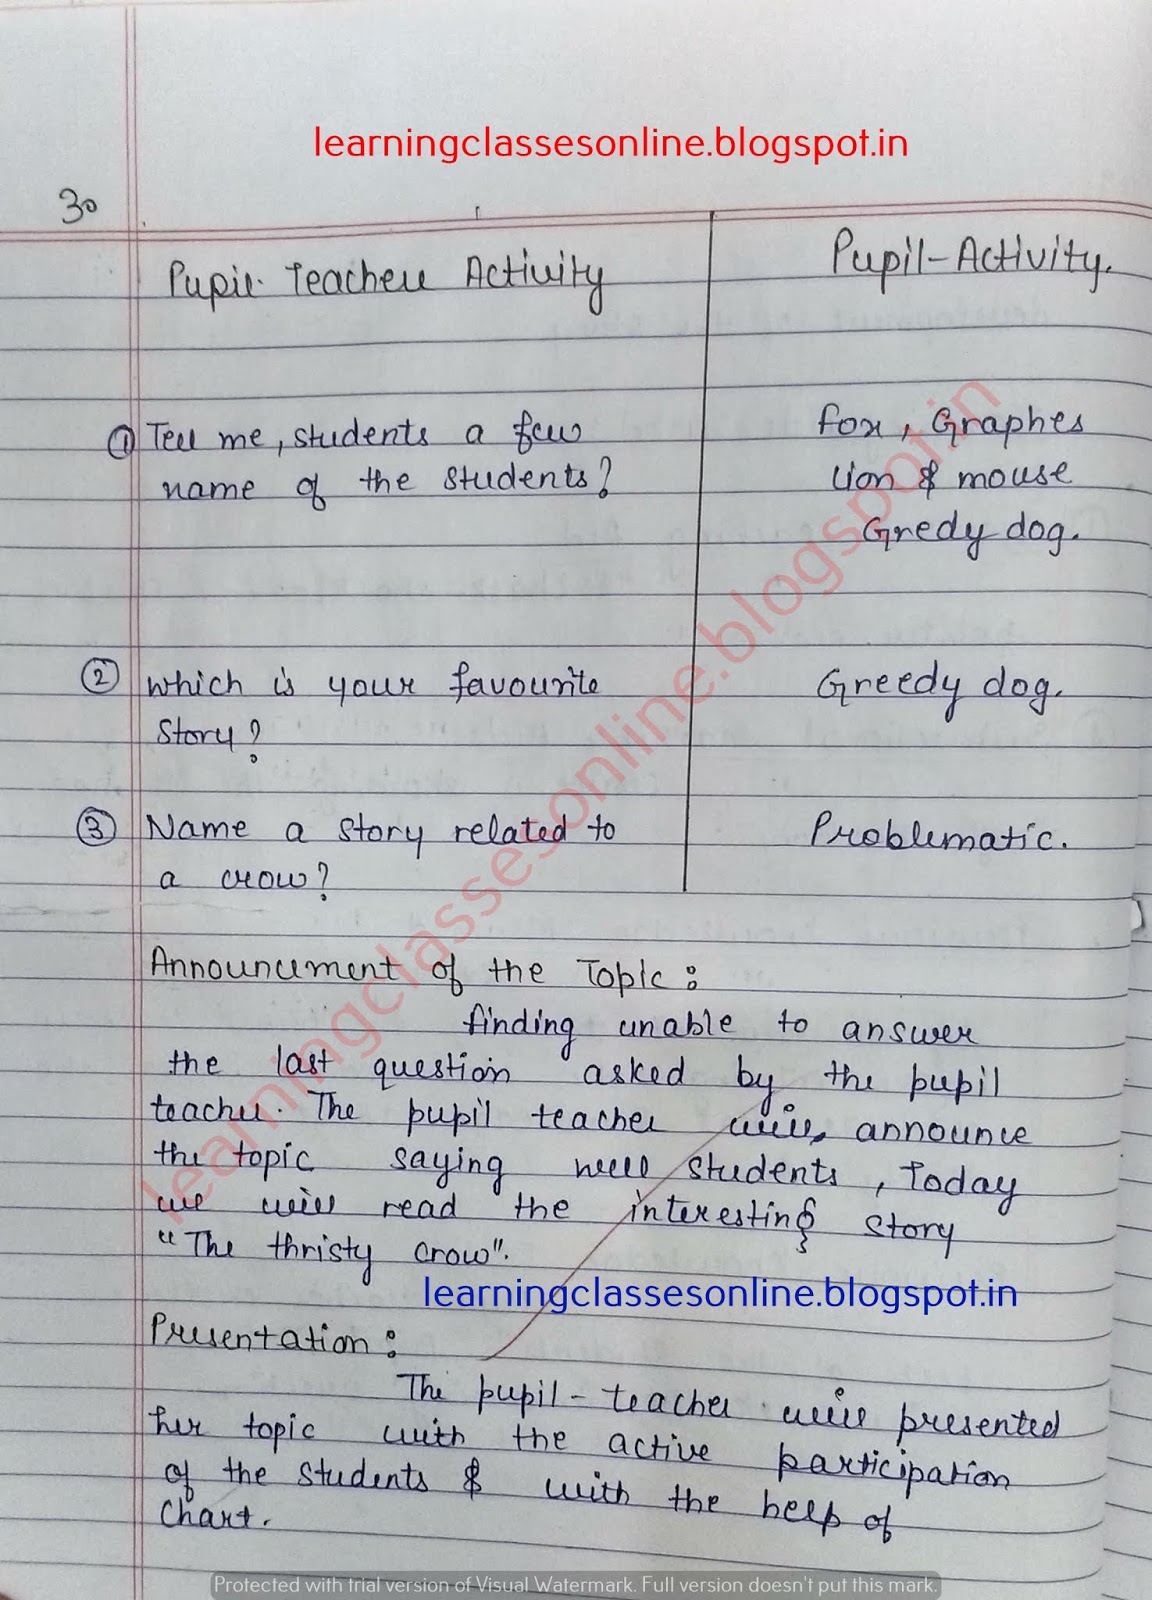 learningclassesonline.blogspot.in
30
Pupil Teacher Activity
Pupil-Activity.
① Tell me, students a few
name of the students?
fox, Graphes
lion & mouse
Gredy dog.
② which is your favourite
story?
Greedy dog.
③ Name a story related to
a crow?
Problematic.
Announcement of the Topic:
finding unable to answer
the last question asked by the pupil
teacher. The pupil teacher will, announce
the topic saying well students, Today
we will read the interesting story
"The thristy crow".
learningclassesonline.blogspot.in
Presentation:
The pupil-teacher will presented
her topic with the active participation
of the students & with the help of
Chart.
learningclassesonline.blogspot.in
Protected with trial version of Visual Watermark. Full version doesn't put this mark.